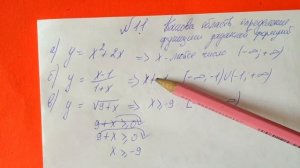 №11 Какова область определения
функции заданной формулой
а) y = x²+2x => x - любое число (-∞; +∞)
б) y = x-1/1+x => x≠ (-∞, -1)∪(-1, +∞)
в) y = √9+x => x≥-9 [ ∞)
9+x≥0
9+x≥0
x≥-9